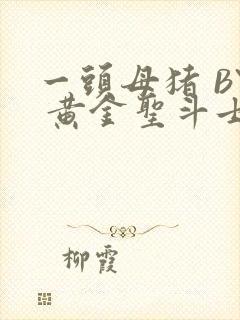 一頭母猪 BY
黄金聖斗士
柳霞